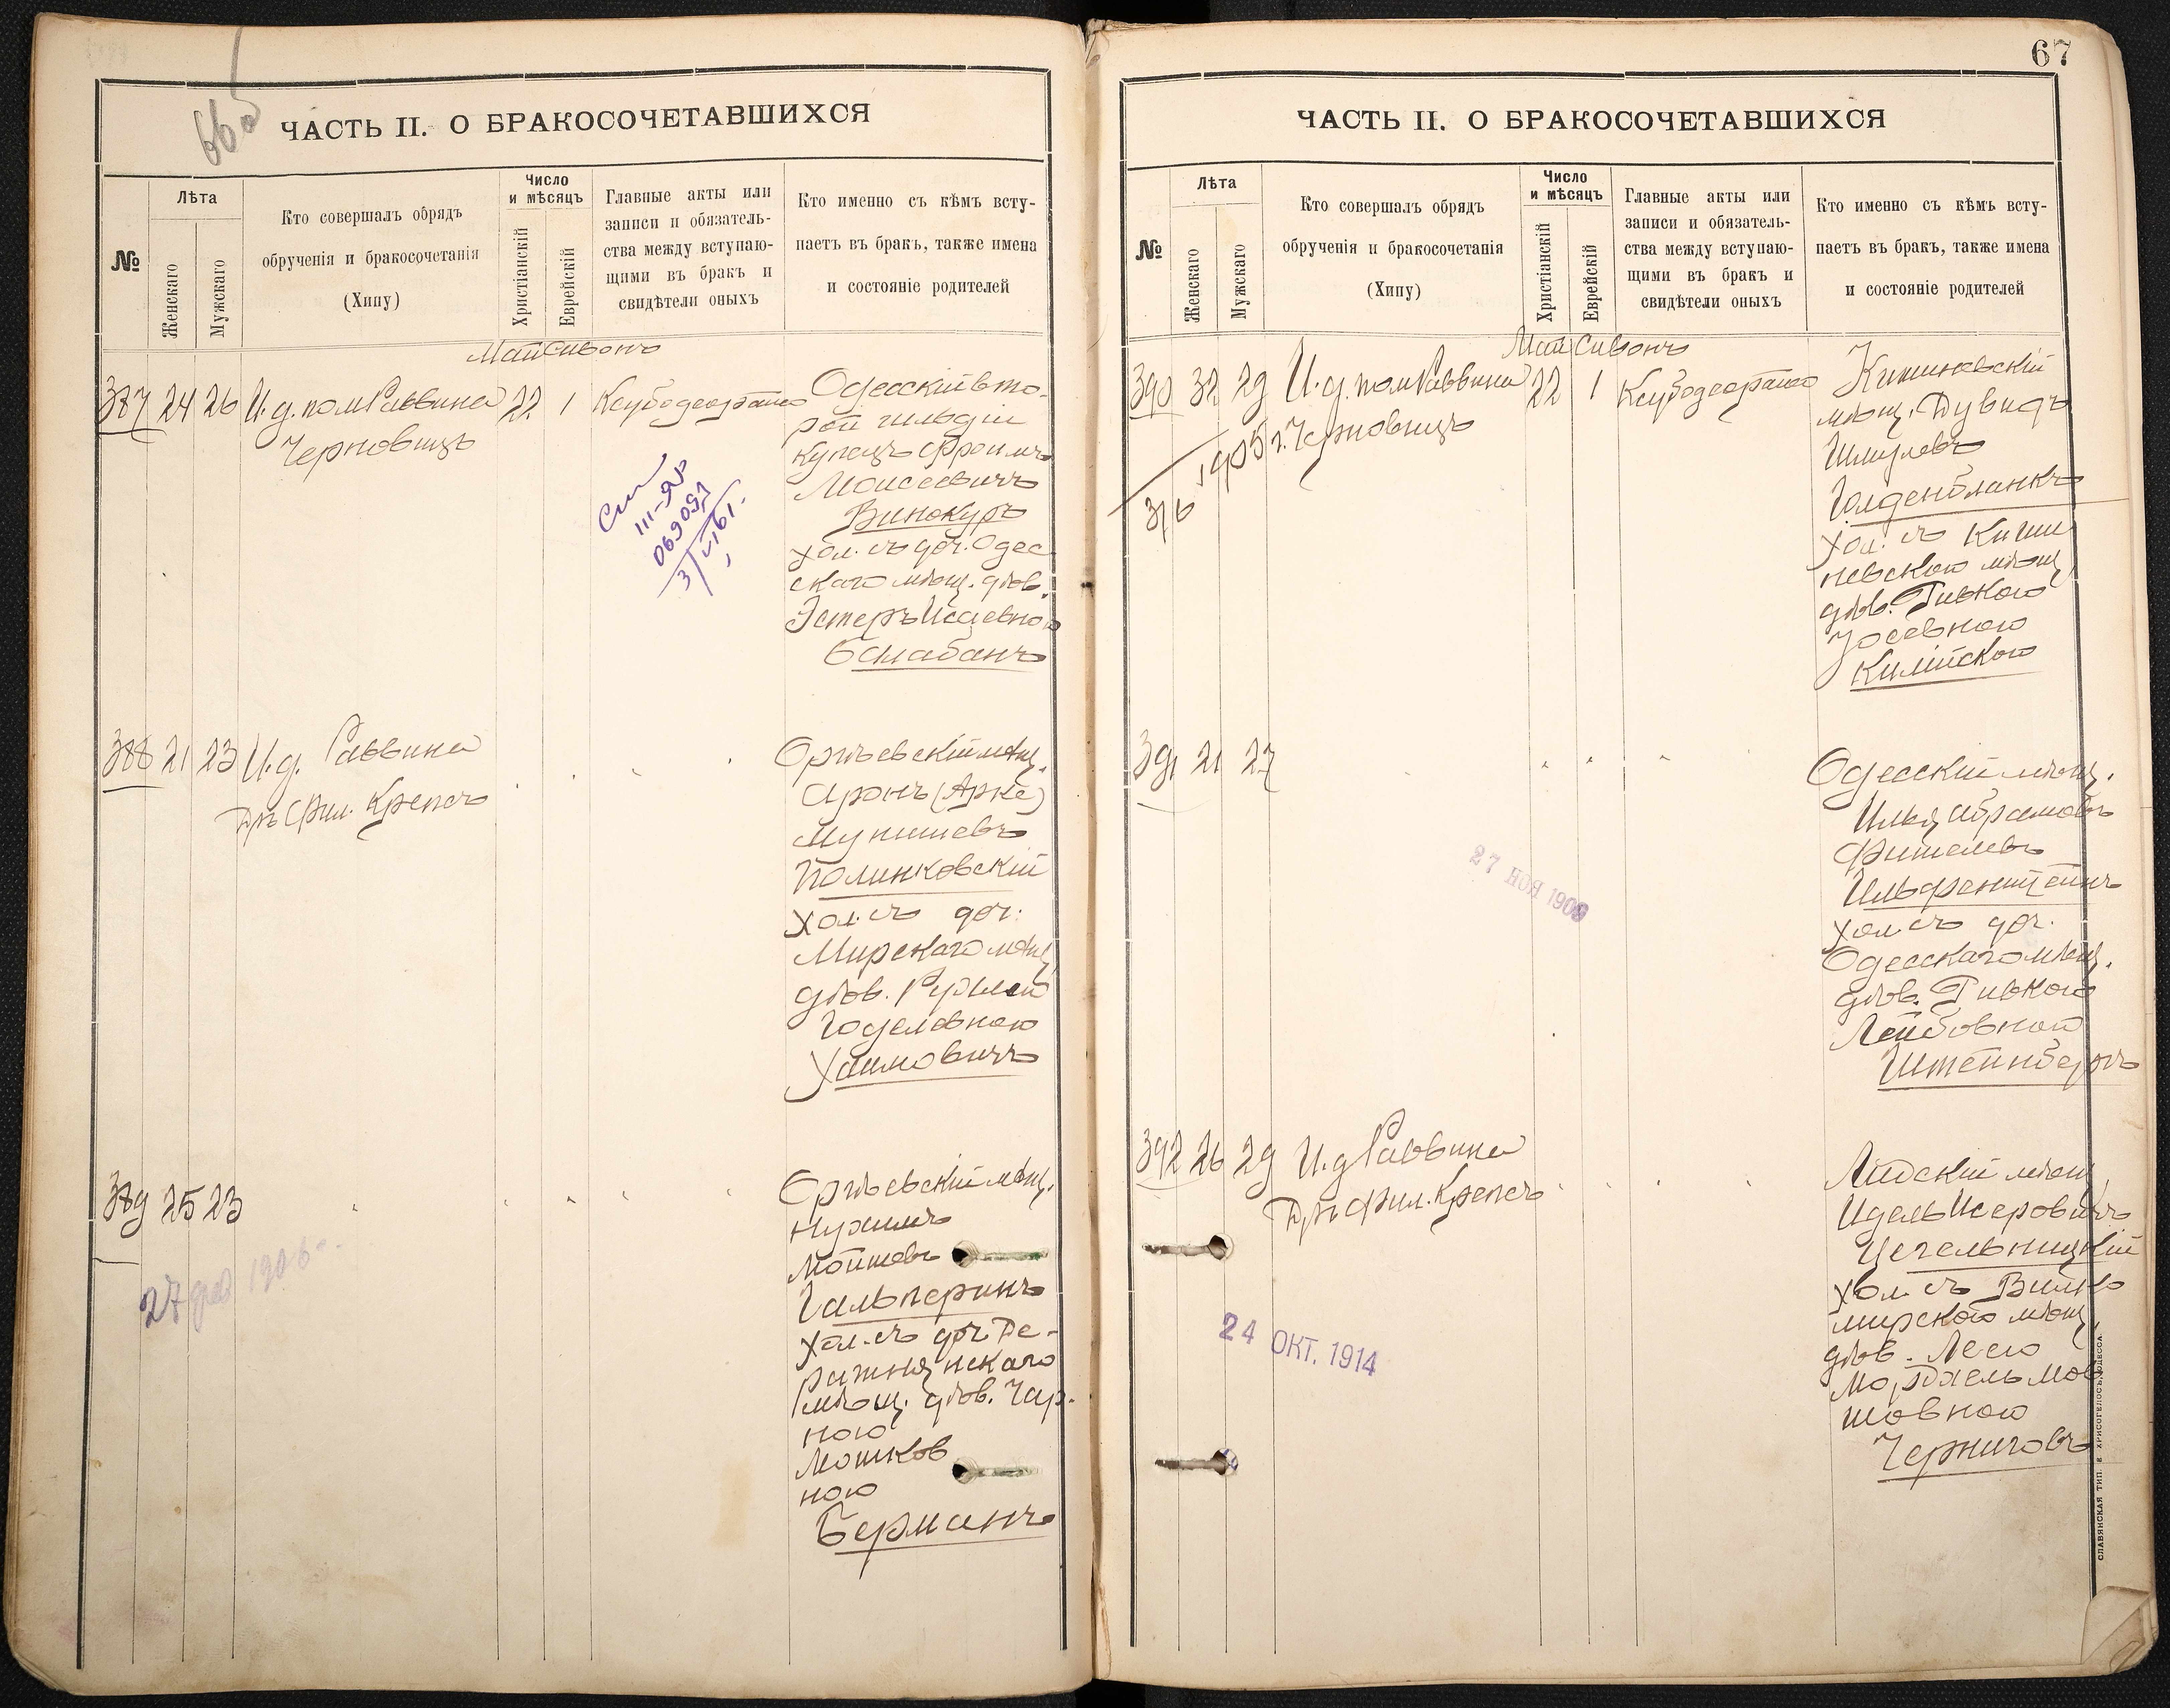 66об
ЧАСТЬ II. О БРАКОСОЧЕТАВШИХСЯ
№
Лѣта
Женскаго
Мужскаго
Кто совершалъ обрядъ
обрученія и бракосочетанія
(Хипу)
Число
и мѣсяцъ
Христіанскій
Еврейскій
Главные акты или
записи и обязатель-
ства между вступаю-
щими въ бракъ и
свидѣтели оныхъ
Кто именно съ кѣмъ всту-
паетъ въ бракъ, также имена
и состояніе родителей
Май Сивонъ
387 24 26 И.д. пом Раввина 22 1
Черновицъ
Одесскій вто-
рой гильдіи
купецъ Фроимъ
Моисеевичъ
Винокуръ
хол. съ доч. Одес
скаго мѣщ. дѣв.
Эстеръ Исаевною
Балабанъ
III-ЯР
069091
388 21 23 И.д. Раввина
Дръ Фил. Крепсъ
Оргѣевскій мѣщ.
Аронъ (Арке)
Мунишевъ
Полинковскій
хол. съ доч.
Мирскаго мѣщ.
дѣв. Рухлею
Годелевною
Хаимовичъ
389 25 23
27 фев 1906
Оргѣевскій мѣщ.
Нухимъ
Мойшевъ
Гальперинъ
хол. съ доч. Де-
ражнянскаго
мѣщ. дѣв. Чар-
ною
Мошков
ною
Берманъ
67
ЧАСТЬ II. О БРАКОСОЧЕТАВШИХСЯ
№
Лѣта
Женскаго
Мужскаго
Кто совершалъ обрядъ
обрученія и бракосочетанія
(Хипу)
Число
и мѣсяцъ
Христіанскій
Еврейскій
Главные акты или
записи и обязатель-
ства между вступаю-
щими въ бракъ и
свидѣтели оныхъ
Кто именно съ кѣмъ всту-
паетъ въ бракъ, также имена
и состояніе родителей
Май Сивонъ
390 32 29 И.д. пом Раввина 22 1
Черновицъ
3/6 1905 г.
Кишиневскій
мѣщ. Дувидъ
Шмулевъ
Голденбланкъ
хол. съ Киши
невскою мѣщ.
дѣв. Ривкою
Іосевною
Килійскою
391 21 27
27 НОЯ 1909
Одесскій мѣщ.
Илья Абрамовъ
Фишелевъ
Ильфенштейнъ
хол. съ доч.
Одесскаго мѣщ.
дѣв. Ривкою
Лейбовною
Штейнбергъ
392 26 29 И.д Раввина
Дръ Фил. Крепсъ
24 ОКТ. 1914
Лидскій мѣщ.
Идель Исеровичъ
Цегельницкій
хол. съ Вилко
мирскою мѣщ.
дѣв. Леею
шовною
Черниговъ
СЛАВЯНСКАЯ ТИП. Е. ХРИСОГЕЛОСЪ, ОДЕССА.